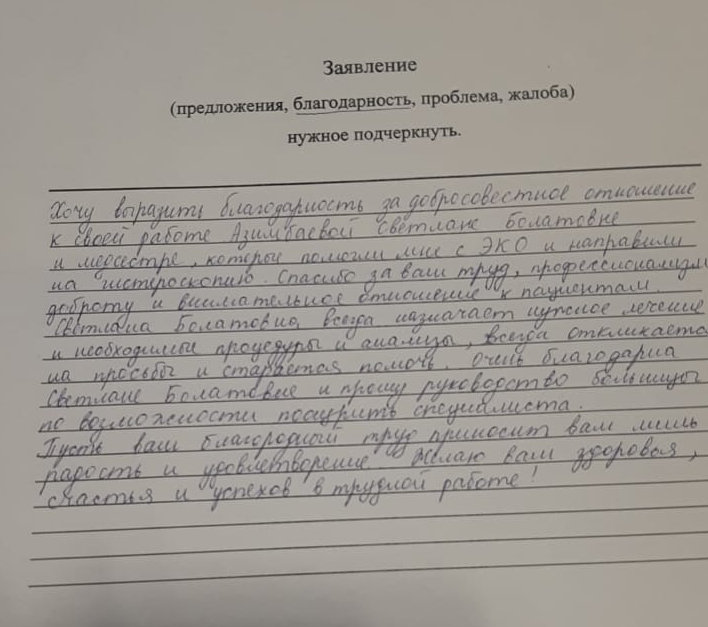 Заявление
(предложения, благодарность, проблема, жалоба)
нужное подчеркнуть.
Хочу выразить благодарность за добросовестное отношение
к своей работе Азимбаевой Светлане Болатовне
и медсестре, которые помогли мне с ЭКО и направили
на гистероскопию. Спасибо за ваш труд, профессионализм
доброту и внимательное отношение к пациентам.
Светлана Болатовна всегда назначает нужное лечение
и необходимые процедуры и анализы, всегда откликается
на просьбы и старается помочь. Очень благодарна
Светлане Болатовне и прошу руководство больницы
по возможности поощрить специалиста.
Пусть ваш благородный труд приносит вам лишь
радость и удовлетворение. Желаю вам здоровья,
счастья и успехов в трудной работе!